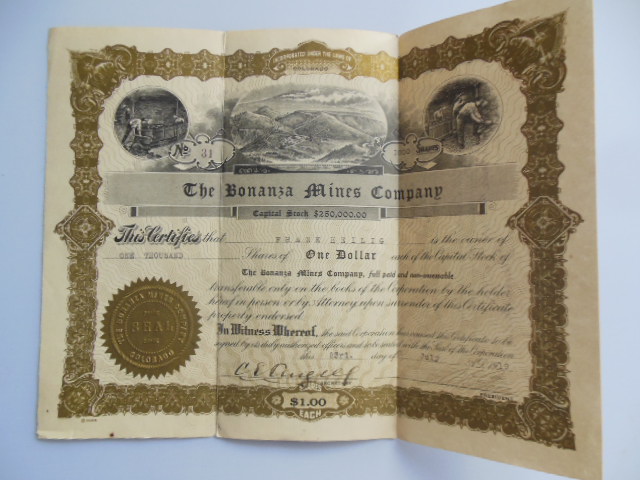 INCORPORATED UNDER THE LAWS OF
COLORADO
No 31
SHARES
The Bonanza Mines Company
Capital Stock $250,000.00
This Certifies that FRANK HEILIG is the owner of
ONE THOUSAND Shares of One Dollar each of the Capital Stock of
The Bonanza Mines Company, full paid and non-assessable
transferable only on the books of the Corporation by the holder
hereof in person or by Attorney upon surrender of this Certificate
properly endorsed.
In Witness Whereof, the said Corporation has caused this Certificate to be
signed by its duly authorized officers and to be sealed with the Seal of the Corporation
this 23rd. day of July
THE BONANZA MINES COMPANY
SEAL
COLORADO
$1.00
EACH